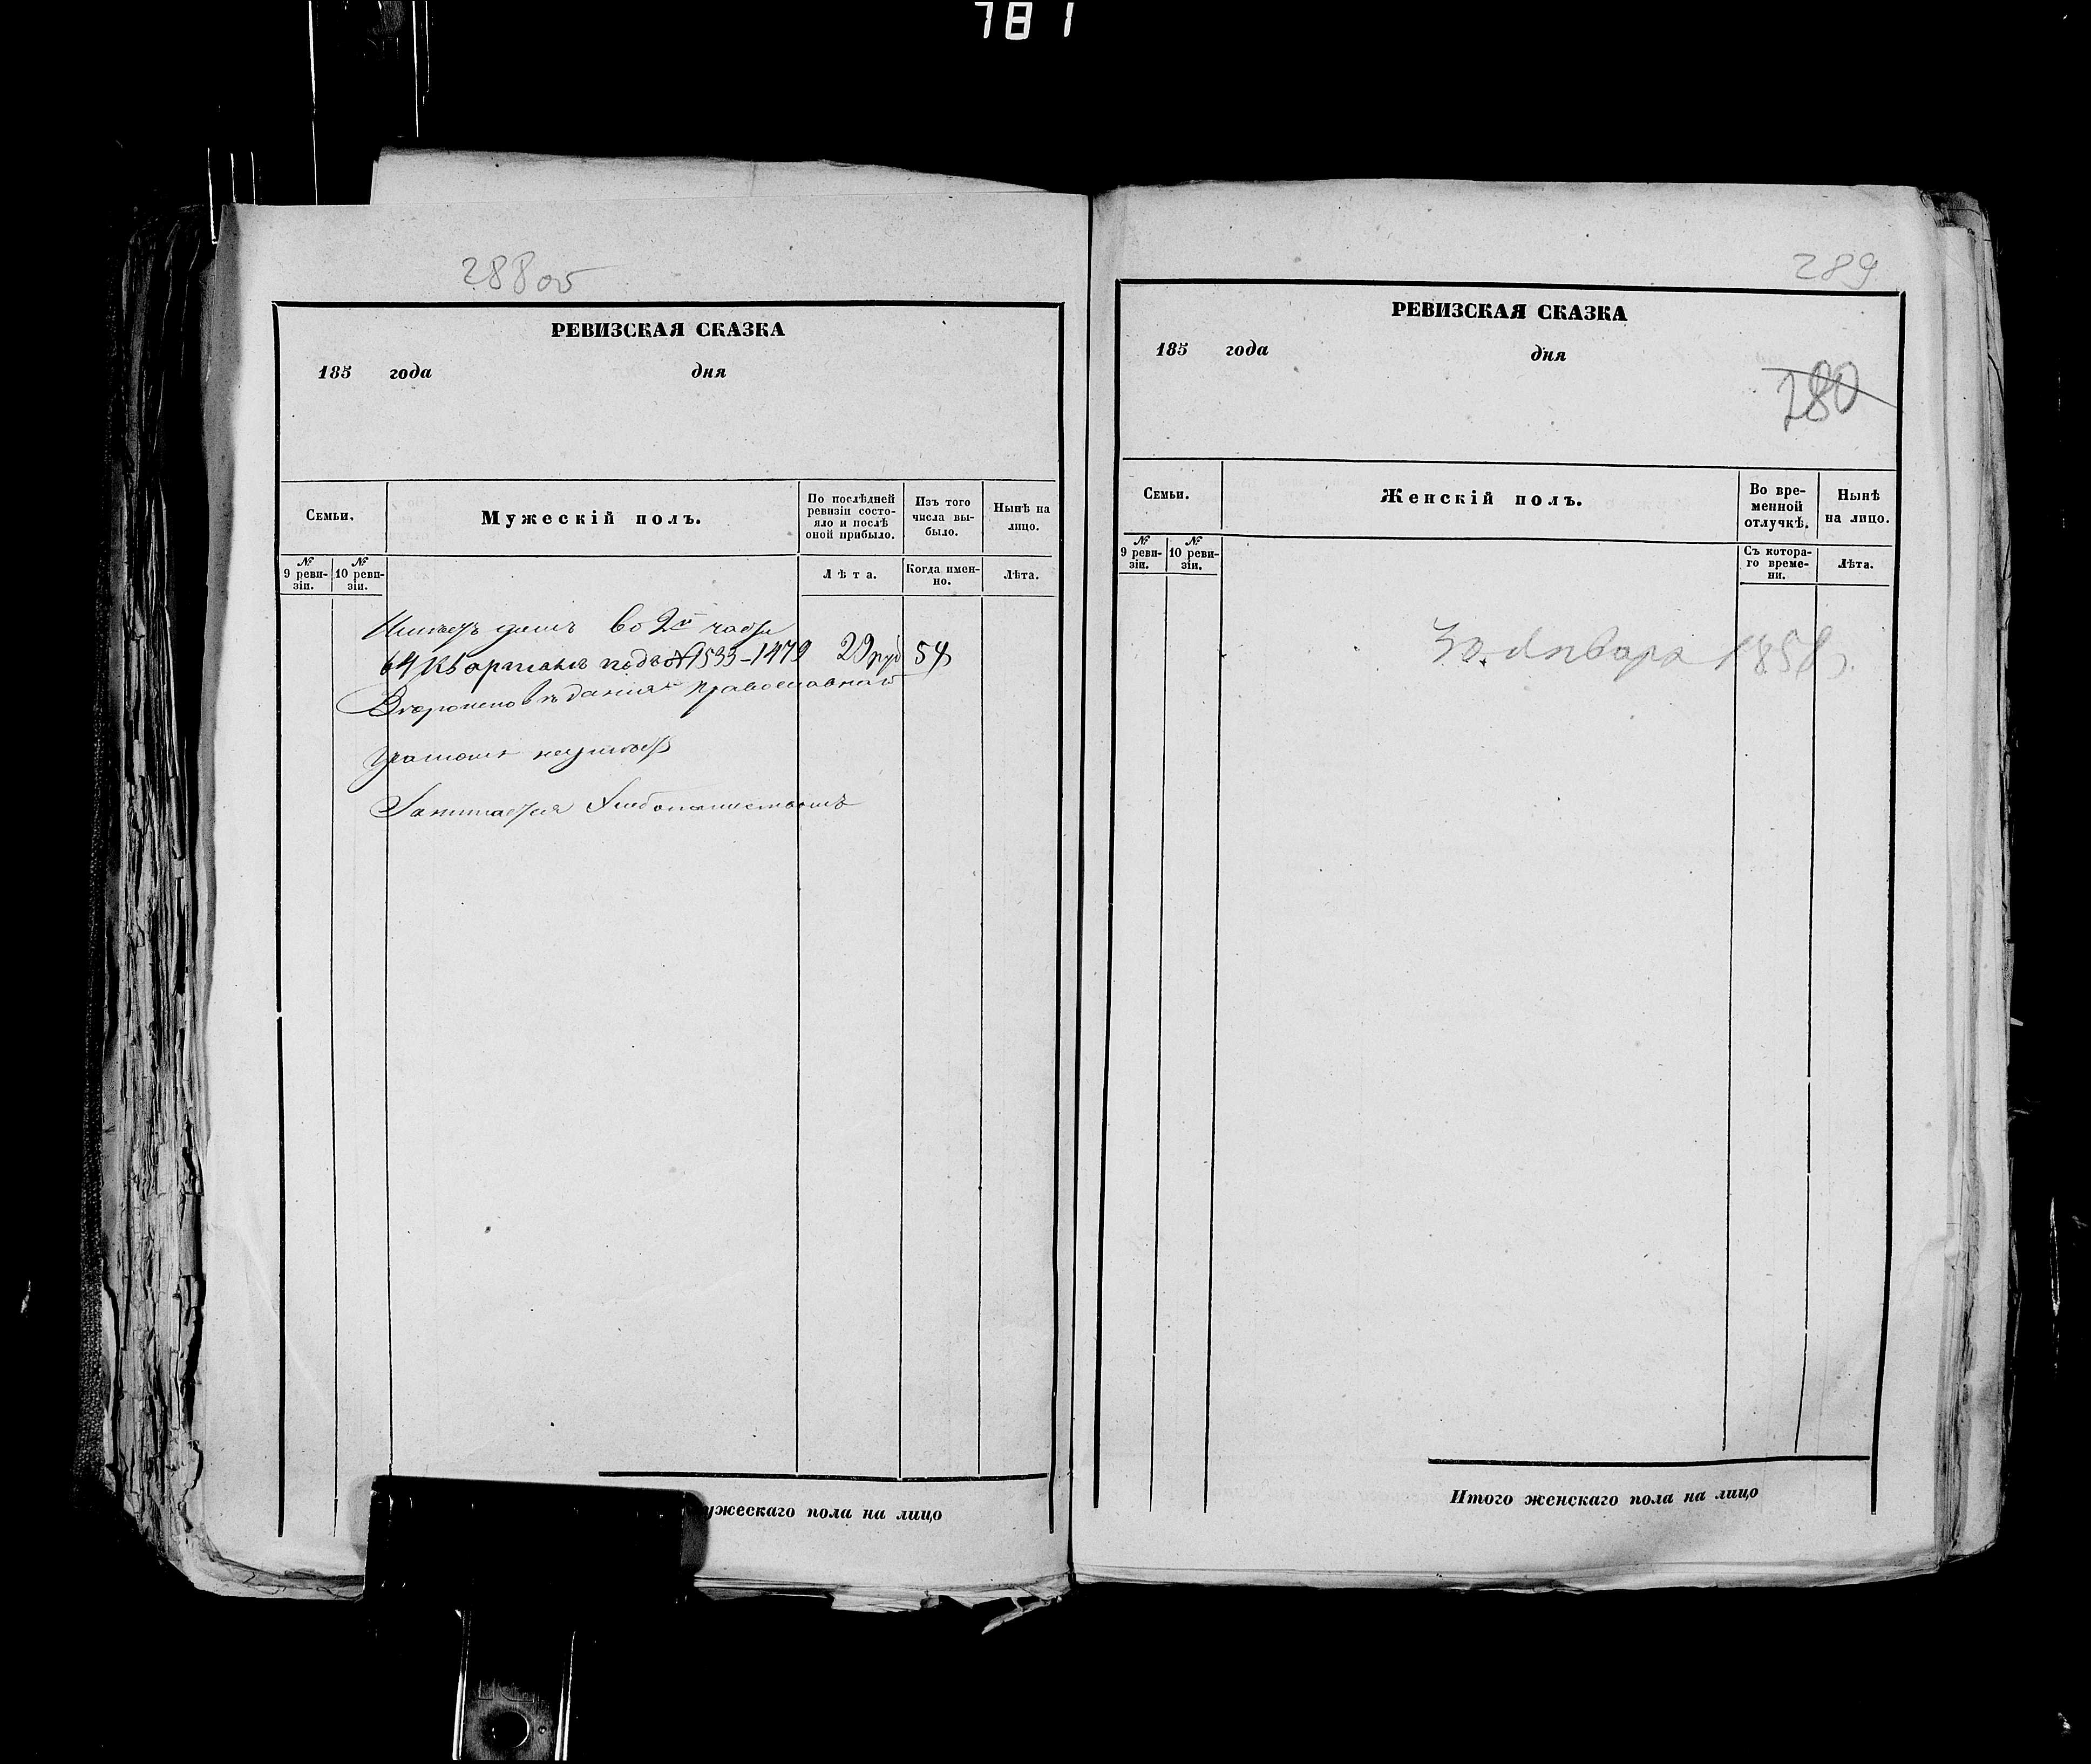 781
288 об
РЕВИЗСКАЯ СКАЗКА
185 года дня
Семьи.
Мужескій полъ.
По послѣдней ревизіи состояло и послѣ оной прибыло.
Изъ того числа выбыло.
Нынѣ на лицо.
№ 9 ревизіи.
№ 10 ревизіи.
Лѣта.
Когда именно.
Лѣта.
Имѣетъ домъ во 2й части
64 кварталѣ подъ № 1533-1479 29 руб 54
вѣданія православнаго
грамоте неумѣетъ
Занимается хлебопашествомъ
ужескаго пола на лицо
289
РЕВИЗСКАЯ СКАЗКА
185 года дня
280
Семьи.
Женскій полъ.
Во временной отлучкѣ.
Нынѣ на лицо.
№ 9 ревизіи.
№ 10 ревизіи.
Съ котораго времени.
Лѣта.
30. Января 1858 г.
Итого женскаго пола на лицо